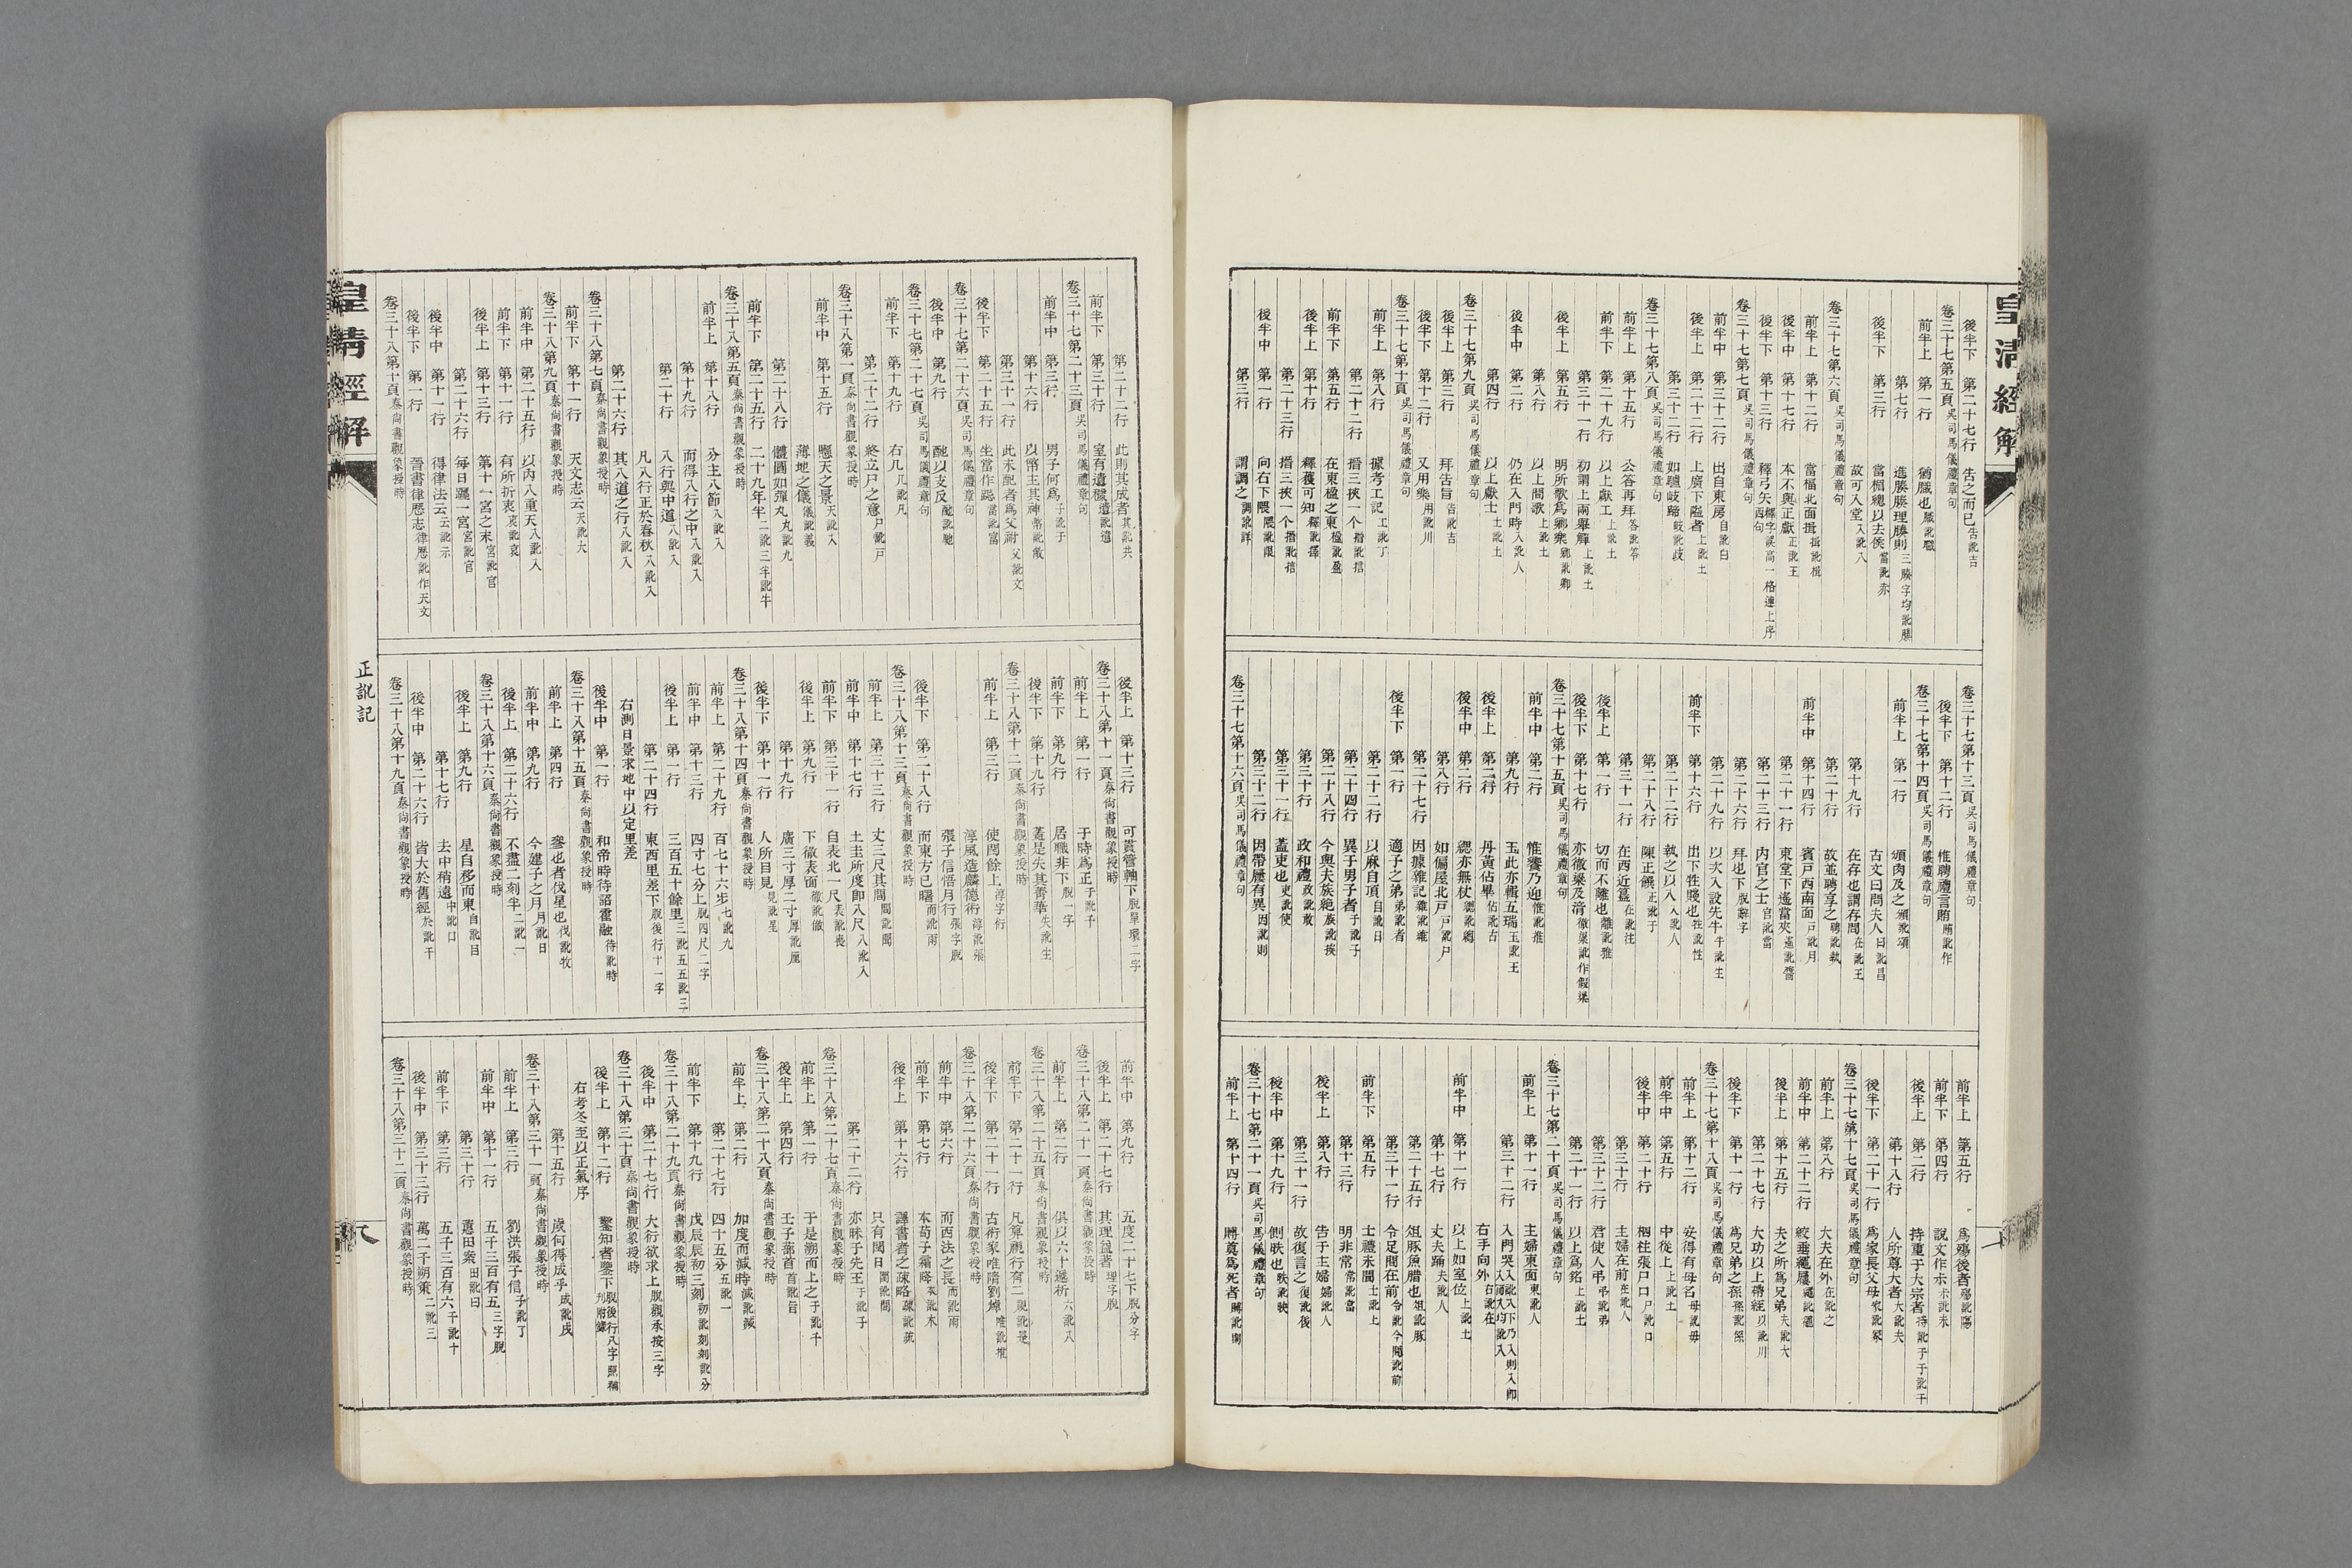 皇清經解
後半下 第二十七行 告之而已告訛吉
卷三十七第五頁吳司馬儀禮章句
前半上 第一行 猶臘也
第七行 進腠腠理腠則
後半下 第三行 當楣
故可入堂入訛八
卷三十七第六頁吳司馬儀禮章句
前半上 第十二行 當楅北面揖揖訛楫
後半中 第十七行 本不與正獻正訛王
後半下 第十三行 釋弓矢
卷三十七第七頁吳司馬儀禮章句
前半中 第三十二行 出自東房自訛白
後半上 第二十二行 上廣下隘者上訛土
第三十二行 如驢岐蹄岐訛歧
卷三十七第八頁吳司馬儀禮章句
前半上 第十五行 公答再拜答訛荅
前半下 第二十九行 以上獻工上訛土
第三十一行 初謂上兩舉觶上訛土
後半上 第五行 明所歌爲鄉樂鄉訛卿
第八行 以上間歌上訛土
後半中 第二行 仍在入門時入訛人
第四行 以上獻士士訛土
卷三十七第九頁吳司馬儀禮章句
後半上 第三行 拜告旨旨訛吉
後半下 第十二行 又用樂用訛川
卷三十七第十頁吳司馬儀禮章句
前半上 第八行 據考工記工訛丁
第二十二行 搢三挾一个搢訛揩
前半下 第五行 在東楹之東楹訛盈
後半上 第十行 釋獲可知釋訛擇
第二十三行 搢三挾一个搢訛揩
後半中 第一行 向右下隈隈訛限
第三行 謂調之調訛詳
卷三十七第十三頁吳司馬儀禮章句
後半下 第十二行 惟聘禮言賄賄訛作
卷三十七第十四頁吳司馬儀禮章句
前半上 第一行 頒肉及之頒訛頌
古文曰問夫人曰訛昌
在存也謂存問在訛王
第十九行 故並聘享之聘訛執
第二十行 賓戶西南面戶訛月
前半中 第十四行 東堂下
第二十一行 内官之士官訛當
第二十三行 拜也下脫辭字
第二十六行 以次入設先牛牛訛生
第二十九行 出下牲賤也牲訛性
前半下 第十六行 執之以入入訛人
第二十二行 陳正饌正訛于
第二十八行 在西近簋在訛注
第三十一行 切而不離也離訛雅
後半上 第一行 亦徹粱及湇
後半下 第十七行
卷三十七第十五頁吳司馬儀禮章句
前半中 第二行 惟饗乃迎惟訛推
第九行 玉此亦輯五瑞玉訛王
後半上 第二行 丹黃佔畢佔訛古
後半中 第二行 總亦無杖
第八行 如偏屋北戸戸訛尸
第二十七行 因據雜記雜訛雖
後半下 第一行 適子之弟弟訛者
第二十二行 以麻自項自訛日
第二十四行 異于男子者于訛子
第二十八行 今與夫族絶族訛挨
第三十行 政和禮政訛敢
第三十一行 蓋吏也吏訛使
第三十二行 因帶屨有異因訛則
卷三十七第十六頁吳司馬儀禮章句
前半上 第五行 爲殤後者殤訛陽
前半下 第四行 說文作尗尗訛未
後半上 第二行 持重于大宗者持訛子于訛干
第十八行 人所尊大者大訛夫
後半下 第二十一行 爲家長父母家訛冢
卷三十七第十七頁吳司馬儀禮章句
前半上 第八行 大夫在外在訛之
前半中 第二十二行 絞垂
後半上 第十五行 夫之所爲兄弟夫訛大
第二十七行 大功以上帶絰以訛川
後半下 第十一行 爲兄弟之孫孫訛係
卷三十七第十八頁吳司馬儀禮章句
前半上 第十二行 安得有母名母訛毋
前半中 第五行 中從上上訛土
後半中 第二十行 柩在張尸口尸訛口
第三十行 主婦在前在訛人
第三十二行 君使人弔弔訛弟
第二十一行 以上爲銘上訛土
卷三十七第二十頁吳司馬儀禮章句
前半上 第十一行 主婦東面東訛人
第三十二行 入門哭
右手向外右訛在
前半中 第十一行 以上如室位上訛土
第十七行 丈夫踊夫訛人
第二十五行 俎豚魚腊也俎訛豚
第三十一行 令足間在前令訛今間訛前
前半下 第五行 士禮未間士訛上
第十三行 明非常常訛當
後半上 第八行 告于主婦婦訛人
第三十一行 故復言之復訛後
後半中 第十九行 側
卷三十七第二十一頁吳司馬儀禮章句
前半上 第十四行 賵奠爲死者賵訛賙
第二十二行 此則其成者其訛共
前半下 第三十行 室有遺穢遺訛遣
卷三十七第二十三頁吳司馬儀禮章句
前半中 第三行 男子何爲子訛于
第十六行 以幣主其神幣訛敝
第三十一行 此未配者爲父祔父訛文
後半下 第二十五行 坐當作跽當訛富
卷三十七第二十六頁吳司馬儀禮章句
後半中 第九行 酏以支反酏訛馳
卷三十七第二十七頁吳司馬儀禮章句
前半下 第十九行 右几几訛凡
第二十二行 終立尸之意尸訛戸
卷三十八第一頁秦尙書觀象授時
前半中 第十五行 懸天之景天訛入
薄地之儀儀訛義
第二十八行 體圓如彈丸丸訛九
前半下 第二十五行 二十九年半二訛三半訛牛
卷三十八第五頁秦尙書觀象授時
前半上 第十八行 分主八節八訛入
第十九行 而得八行之中八訛入
第二十行 八行與中道八訛入
凡八行正於春秋八訛入
第二十六行 其八道之行八訛入
卷三十八第七頁秦尙書觀象授時
前半下 第十一行 天文志云天訛大
卷三十八第九頁秦尙書觀象授時
前半中 第二十五行 以内八重天八訛入
前半下 第十一行 有所折衷衷訛哀
後半上 第十三行 第十一宮之末宮訛官
第二十六行 每日躔一宮宮訛官
後半中 第十一行 得律法云云訛示
後半下 第一行 晉書律厯志律厯訛作天文
卷三十八第十頁秦尙書觀象授時
後半上 第十三行 可貫管軸下脫單環二字
卷三十八第十一頁秦尙書觀象授時
前半上 第一行 于時爲正于訛子
前半下 第九行 居職非下脫一字
後半下 第十九行 蓋是失其菁華失訛生
卷三十八第十二頁秦尙書觀象授時
前半上 第三行 使閏餘上淳字衍
淳風造麟德術淳訛張
張子信悟月行張字脫
後半下 第二十八行 而東方已曙而訛雨
卷三十八第十三頁秦尙書觀象授時
前半上 第三十三行 丈三尺其間間訛聞
前半中 第十七行 土圭所度卽八尺八訛入
前半下 第三十一行 自表北一尺表訛喪
後半上 第九行 下徹表面徹訛徵
第十九行 廣三寸厚二寸厚訛厘
後半下 第十一行 人所目見見訛星
卷三十八第十四頁秦尙書觀象授時
前半上 第二十九行 百七十六步七訛九
前半中 第十三行 四寸七分上脫四尺二字
後半上 第一行 三百五十餘里三訛五五訛三
第二十四行 東西里差下脫後行十一字
右測日景求地中以定里差
後半中 第一行 和帝時待詔霍融待訛時
卷三十八第十五頁秦尙書觀象授時
前半上 第四行 參也者伐星也伐訛牧
前半中 第九行 今建子之月月訛日
後半上 第二十六行 不盡二刻半二訛一
卷三十八第十六頁秦尙書觀象授時
後半上 第九行 星自移而東自訛目
第十七行 去中稍遠中訛口
後半中 第二十六行 皆大於舊經於訛干
卷三十八第十九頁秦尙書觀象授時
前半中 第九行 五度二十七下脫分字
後半上 第二十七行 其理益著理字脫
卷三十八第二十一頁秦尙書觀象授時
前半上 第二行 俱以六十遞析六訛八
卷三十八第二十五頁秦尙書觀象授時
前半下 第二十一行 凡算視行有二視訛是
後半下 第二十一行 古術家唯隋劉焯唯訛惟
卷三十八第二十六頁秦尙書觀象授時
前半中 第六行 而西法之長而訛雨
前半下 第七行 本荀子霜降本訛木
後半上 第十六行 譯書者之疎略疎訛疏
只有閏日閏訛間
第二十二行 亦昧于先王于訛子
卷三十八第二十七頁秦尙書觀象授時
前半上 第一行 于是溯而上之于訛千
後半上 第四行 壬子蔀首首訛旨
卷三十八第二十八頁秦尙書觀象授時
前半上 第二行 加度而減時減訛滅
第二十七行 四十五分五訛一
前半下 第十九行 戊辰辰初三刻初訛刻刻訛分
卷三十八第二十九頁秦尙書觀象授時
後半中 第二十七行 大衍欲求上脫觀承按三字
卷三十八第三十頁秦尙書觀象授時
後半上 第十二行 鑒知者鑒下脫後行八字照補
右考冬至以正氣序
第十五行 歲何得成乎成訛戌
卷三十八第三十一頁秦尙書觀象授時
前半上 第三行 劉洪張子信子訛了
前半中 第十一行 五千三百有五三字脫
第三十行 蕙田案田訛曰
前半下 第三行 五千三百有六千訛十
後半中 第三十三行 萬二千朔策二訛三
卷三十八第三十二頁秦尙書觀象授時
皇清經解
正訛記
八